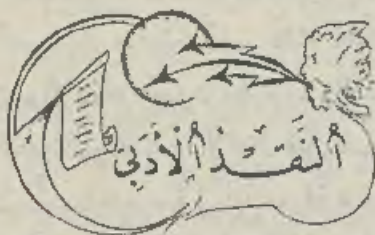 النقد الأدبي